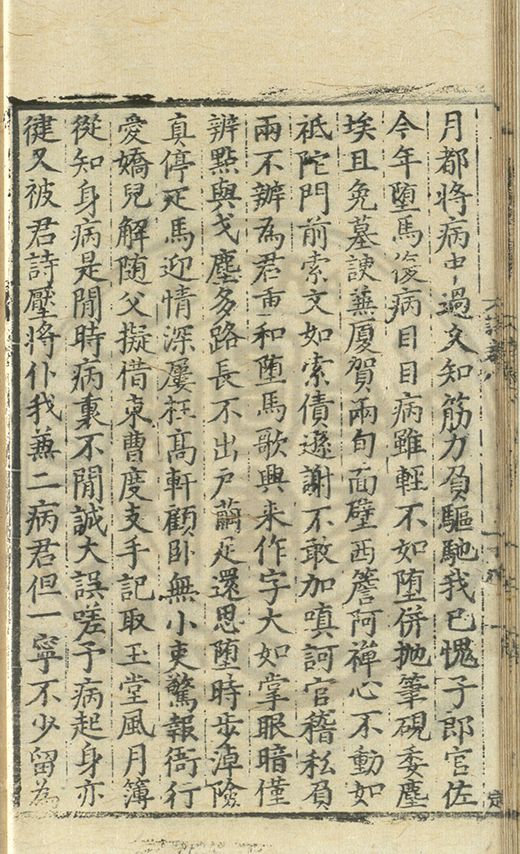 月都將病中過文知筋力負驅馳我已愧子郎官佐
今年墮馬復病目目病雖輕不如墮併抛筆硯委塵
埃且免墓諛兼廈賀兩旬面壁西簷阿禪心不動如
祇陀門前索文如索債遜謝不敢加嗔訶官稽私負
兩不辦為君重和墮馬歌興来作字大如掌眼暗僅
辨點與戈塵多路長不出戶繭足還思墮時步淖險
真停死馬迎情深屢枉髙軒顧卧無小吏驚報衙行
愛嬌兒解随父擬借東曹度支手記取玉堂風月簿
從知身病是閒時病裏不閒誠大誤嗟予病起身亦
徤又被君詩壓將仆我兼二病君但一寧不少留為